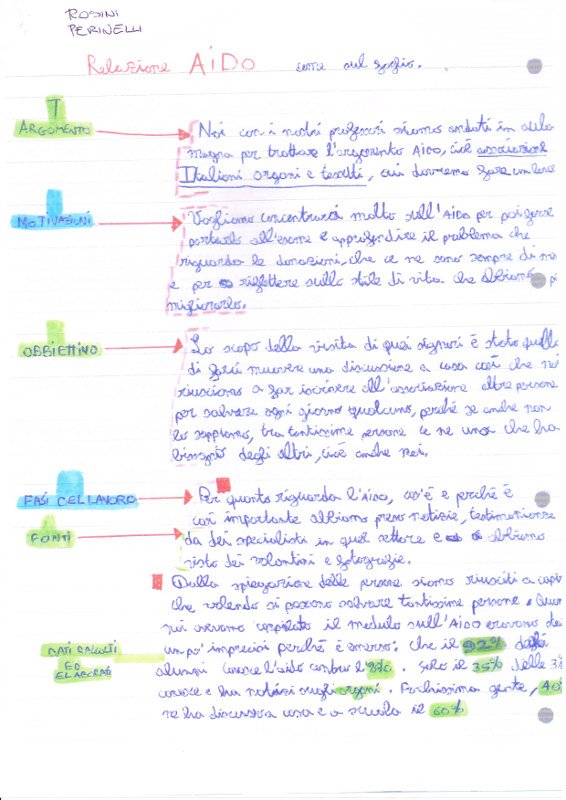 ROSINI
PERINELLI
Relazione AiDO come sul foglio.
ARGOMENTO
Noi con i nostri professori siamo andati in aula
magna per trattare l'argomento AIDO, cioè associazione
Italiani organi e tessuti, cui dovremo fare un lavoro
MOTIVAZIONI
Vogliamo concentrarci molto sull'Aido per poi
portarlo all'esame e approfondire il problema che
riguarda le donazioni, che ce ne sono sempre di me
e per riflettere sullo stile di vita che abbiamo
migliorarlo.
OBBIETTIVO
Lo scopo della visita di quei signori è stato quello
di farci muovere una discussione a casa così che noi
riusciamo a far iscrivere all'associazione altre persone
per salvare ogni giorno qualcuno, perché se anche non
lo sappiamo, tra tantissime persone ce ne una che ha
bisogno degli altri, cioè anche noi.
FASI DEL LAVORO
FONTI
Per quanto riguarda l'Aido, cos'è e perché è
così importante abbiamo preso notizie, testimonianze
da dei specialisti in quel settore e abbiamo
visto dei volantini e fotografie.
Dalla spiegazione delle persone siamo riusciti a capire
che volendo si possono salvare tantissime persone. Quan
noi avevamo compilato il modulo sull'Aido eravamo dei
DATI RACCOLTI
ED
ELABORATI
un po' imprecisi perché è emerso: che il 92% degli
alunni conosce l'aido contro l'8%. Solo il 35% delle 3
conosce e ha notizie sugli organi. Pochissima gente, 40
ne ha discusso a casa e a scuola il 60%